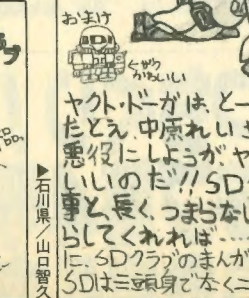 おまけ
かわいい
ヤクト・ドーガは、と
たとえ、中原れい
悪役にしようが、ヤ
いいのだ!!SD
事と、長く、つまらな
らしてくれれば……
に、SDクラブのまんが
SDは三頭身でなく二
▶石川県/山口智久